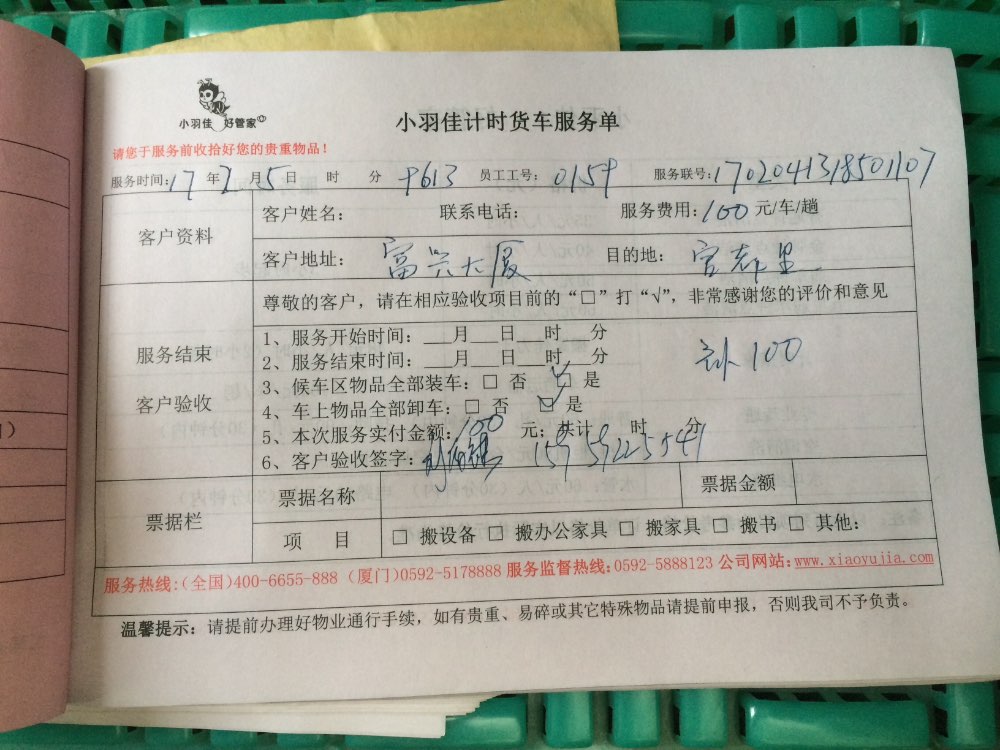 小羽佳 好管家
小羽佳计时货车服务单
请您于服务前收拾好您的贵重物品！
服务时间：17 年 2 月 5 日 时 分 9613 员工工号： 0159 服务联号：1702041318501107
客户资料
客户姓名： 联系电话： 服务费用：100 元/车/趟
客户地址： 富兴大厦 目的地： 官都里
尊敬的客户，请在相应验收项目前的“□”打“√”，非常感谢您的评价和意见
服务结束
客户验收
1、服务开始时间：___月___日___时___分
2、服务结束时间：___月___日___时___分
补100
3、候车区物品全部装车：□ 否 ☑ 是
4、车上物品全部卸车：□ 否 ☑ 是
5、本次服务实付金额：100 元；共计 时 分
6、客户验收签字： 15959225541
票据栏
票据名称 票据金额
项 目 □ 搬设备 □ 搬办公家具 □ 搬家具 □ 搬书 □ 其他：
服务热线：（全国）400-6655-888（厦门）0592-5178888 服务监督热线：0592-5888123 公司网站：www.xiaoyujia.com
温馨提示：请提前办理好物业通行手续，如有贵重、易碎或其它特殊物品请提前申报，否则我司不予负责。